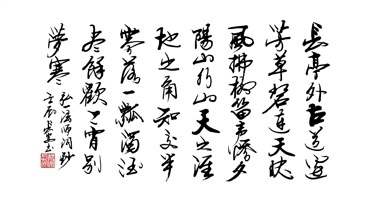 長亭外古道邊
芳草碧連天晚
風拂柳笛聲殘夕
陽山外山天之涯
地之角知交半
零落一瓢濁酒
盡餘歡今宵別
夢寒